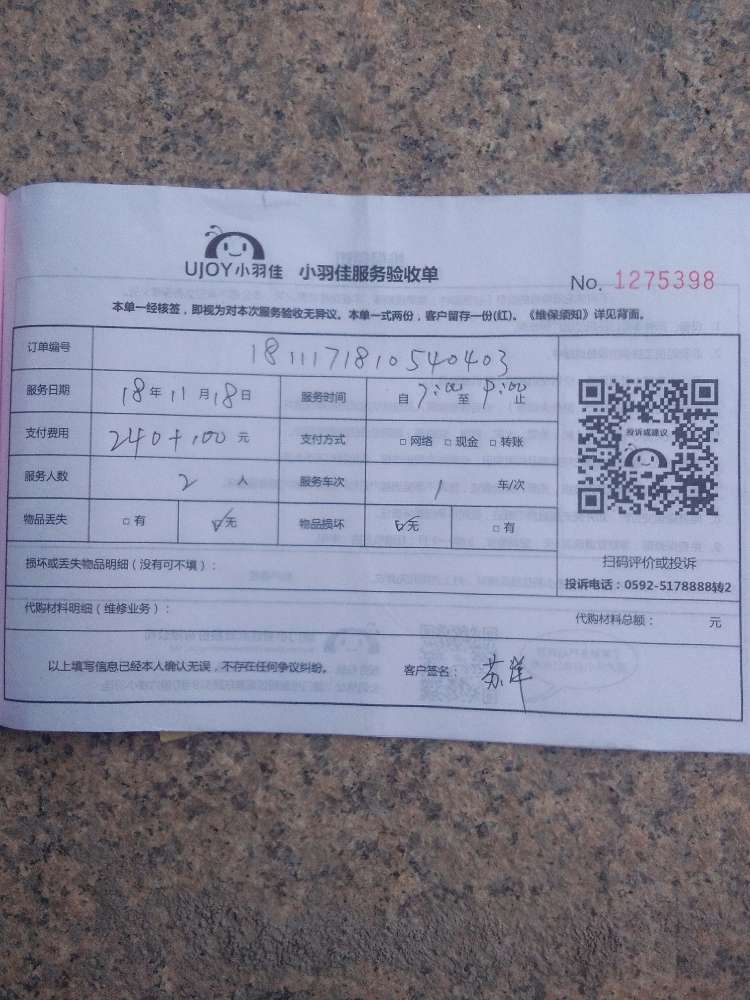 UJOY小羽佳 小羽佳服务验收单
No. 1275398
本单一经核签，即视为对本次服务验收无异议。本单一式两份，客户留存一份(红)。《维保须知》详见背面。
订单编号 181117181054040３
服务日期 18年11月18日 服务时间 自 7:00 至 9:00 止
支付费用 240+100 元 支付方式 □网络 □现金 □转账
投诉或建议
服务人数 2 人 服务车次 1 车/次
物品丢失 □有 ☑无 物品损坏 ☑无 □有
损坏或丢失物品明细（没有可不填）：
扫码评价或投诉
投诉电话：0592-5178888转2
代购材料明细（维修业务）： 代购材料总额： 元
以上填写信息已经本人确认无误，不存在任何争议纠纷。 客户签名： 苏洋